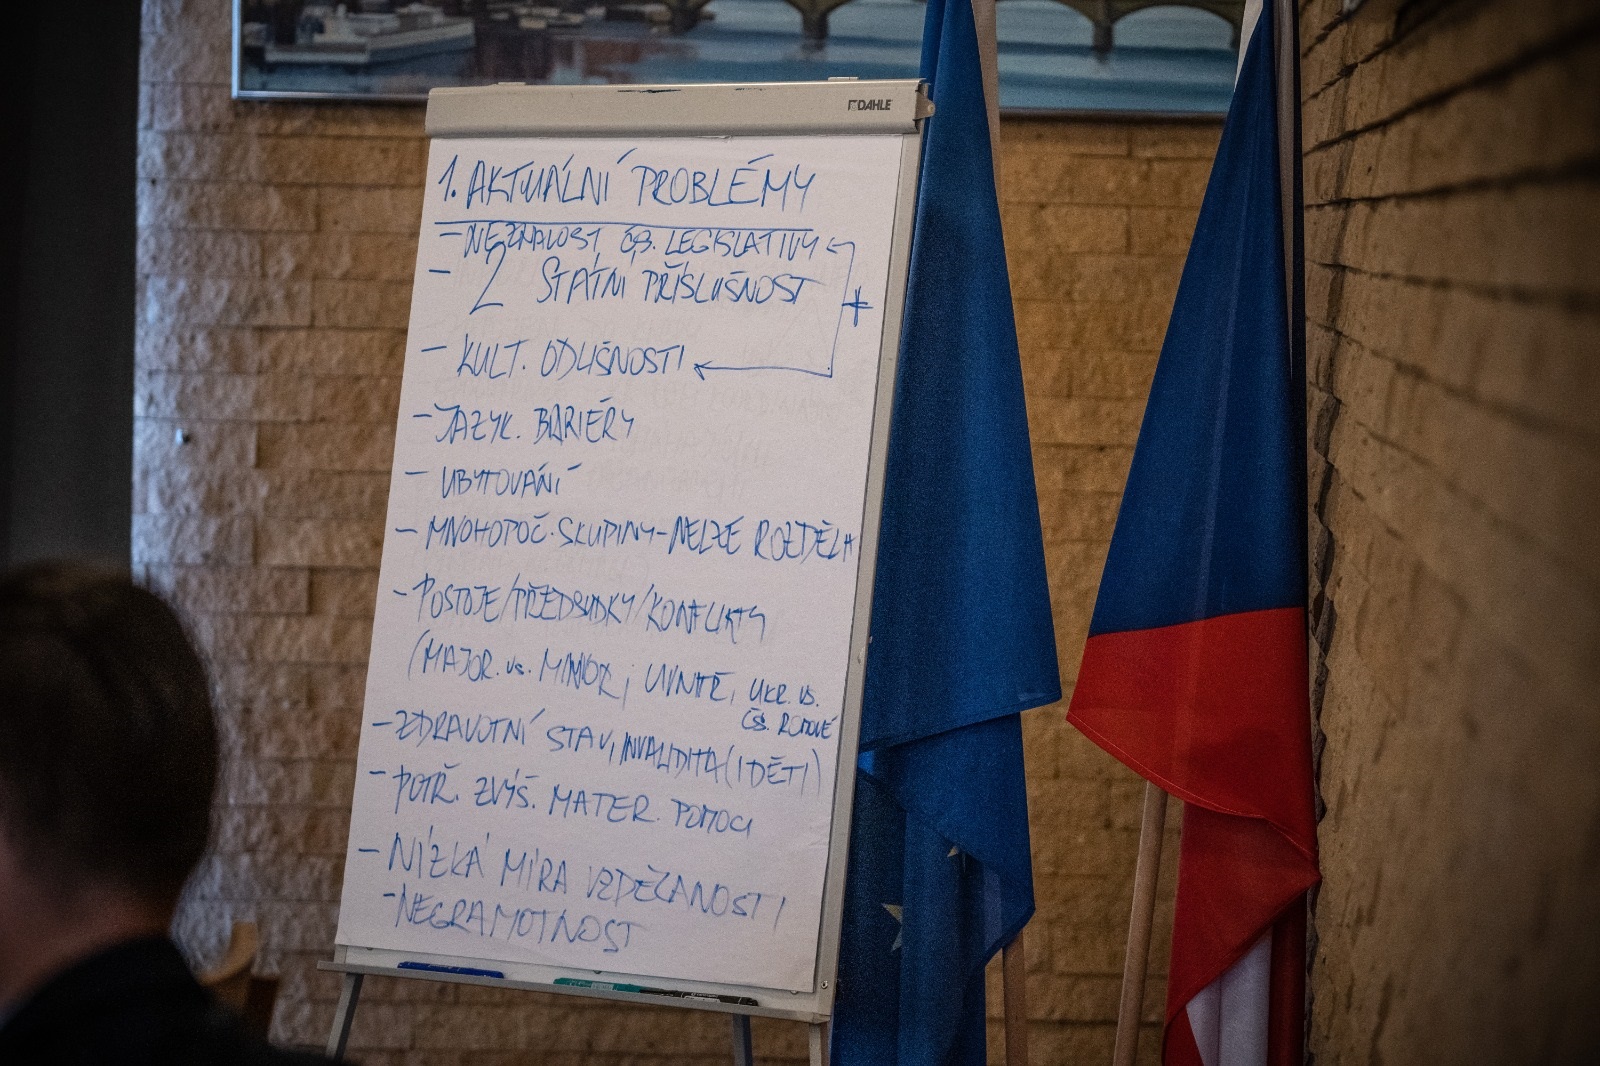 DAHLE
1. AKTUÁLNÍ PROBLÉMY
- NEZNALOST ČS. LEGISLATIVY
- 2 STÁTNÍ PŘÍSLUŠNOST
- KULT. ODLIŠNOSTI
- JAZYK. BARIÉRY
- UBYTOVÁNÍ
- MNOHOPOČ. SKUPINY - NELZE ROZDĚLIT
- POSTOJE/PŘEDSUDKY/KONFLIKTY
(MAJOR. vs. MINOR; UVNITŘ, UKR. VS.
ČS. ROMOVÉ
- ZDRAVOTNÍ STAV, INVALIDITA (I DĚTI)
- POTŘ. ZVÝŠ. MATER. POMOCI
- NÍZKÁ MÍRA VZDĚLANOSTI
- NEGRAMOTNOST